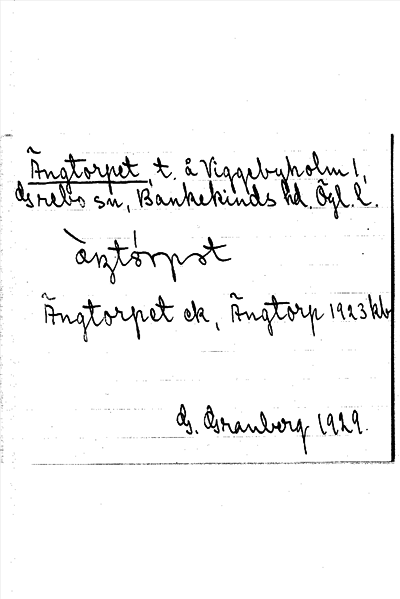 Ängtorpet, t. å Viggebyholm 1,
Grebo sn, Bankekinds hd. Ögl. l.
Ängtorpet ek, Ängtorp 1923 kb
G. Granberg 1929.